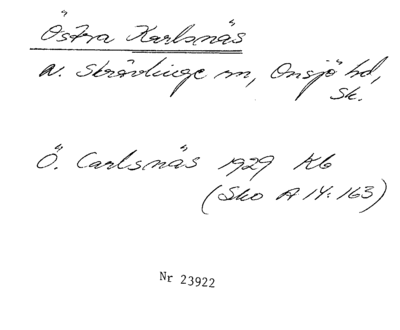 Östra Karlsnäs
N. Skrävlinge sn, Onsjö hd,
Sk.
Ö. Carlsnäs 1929 Kb
(Sko A 14:163)
Nr 23922